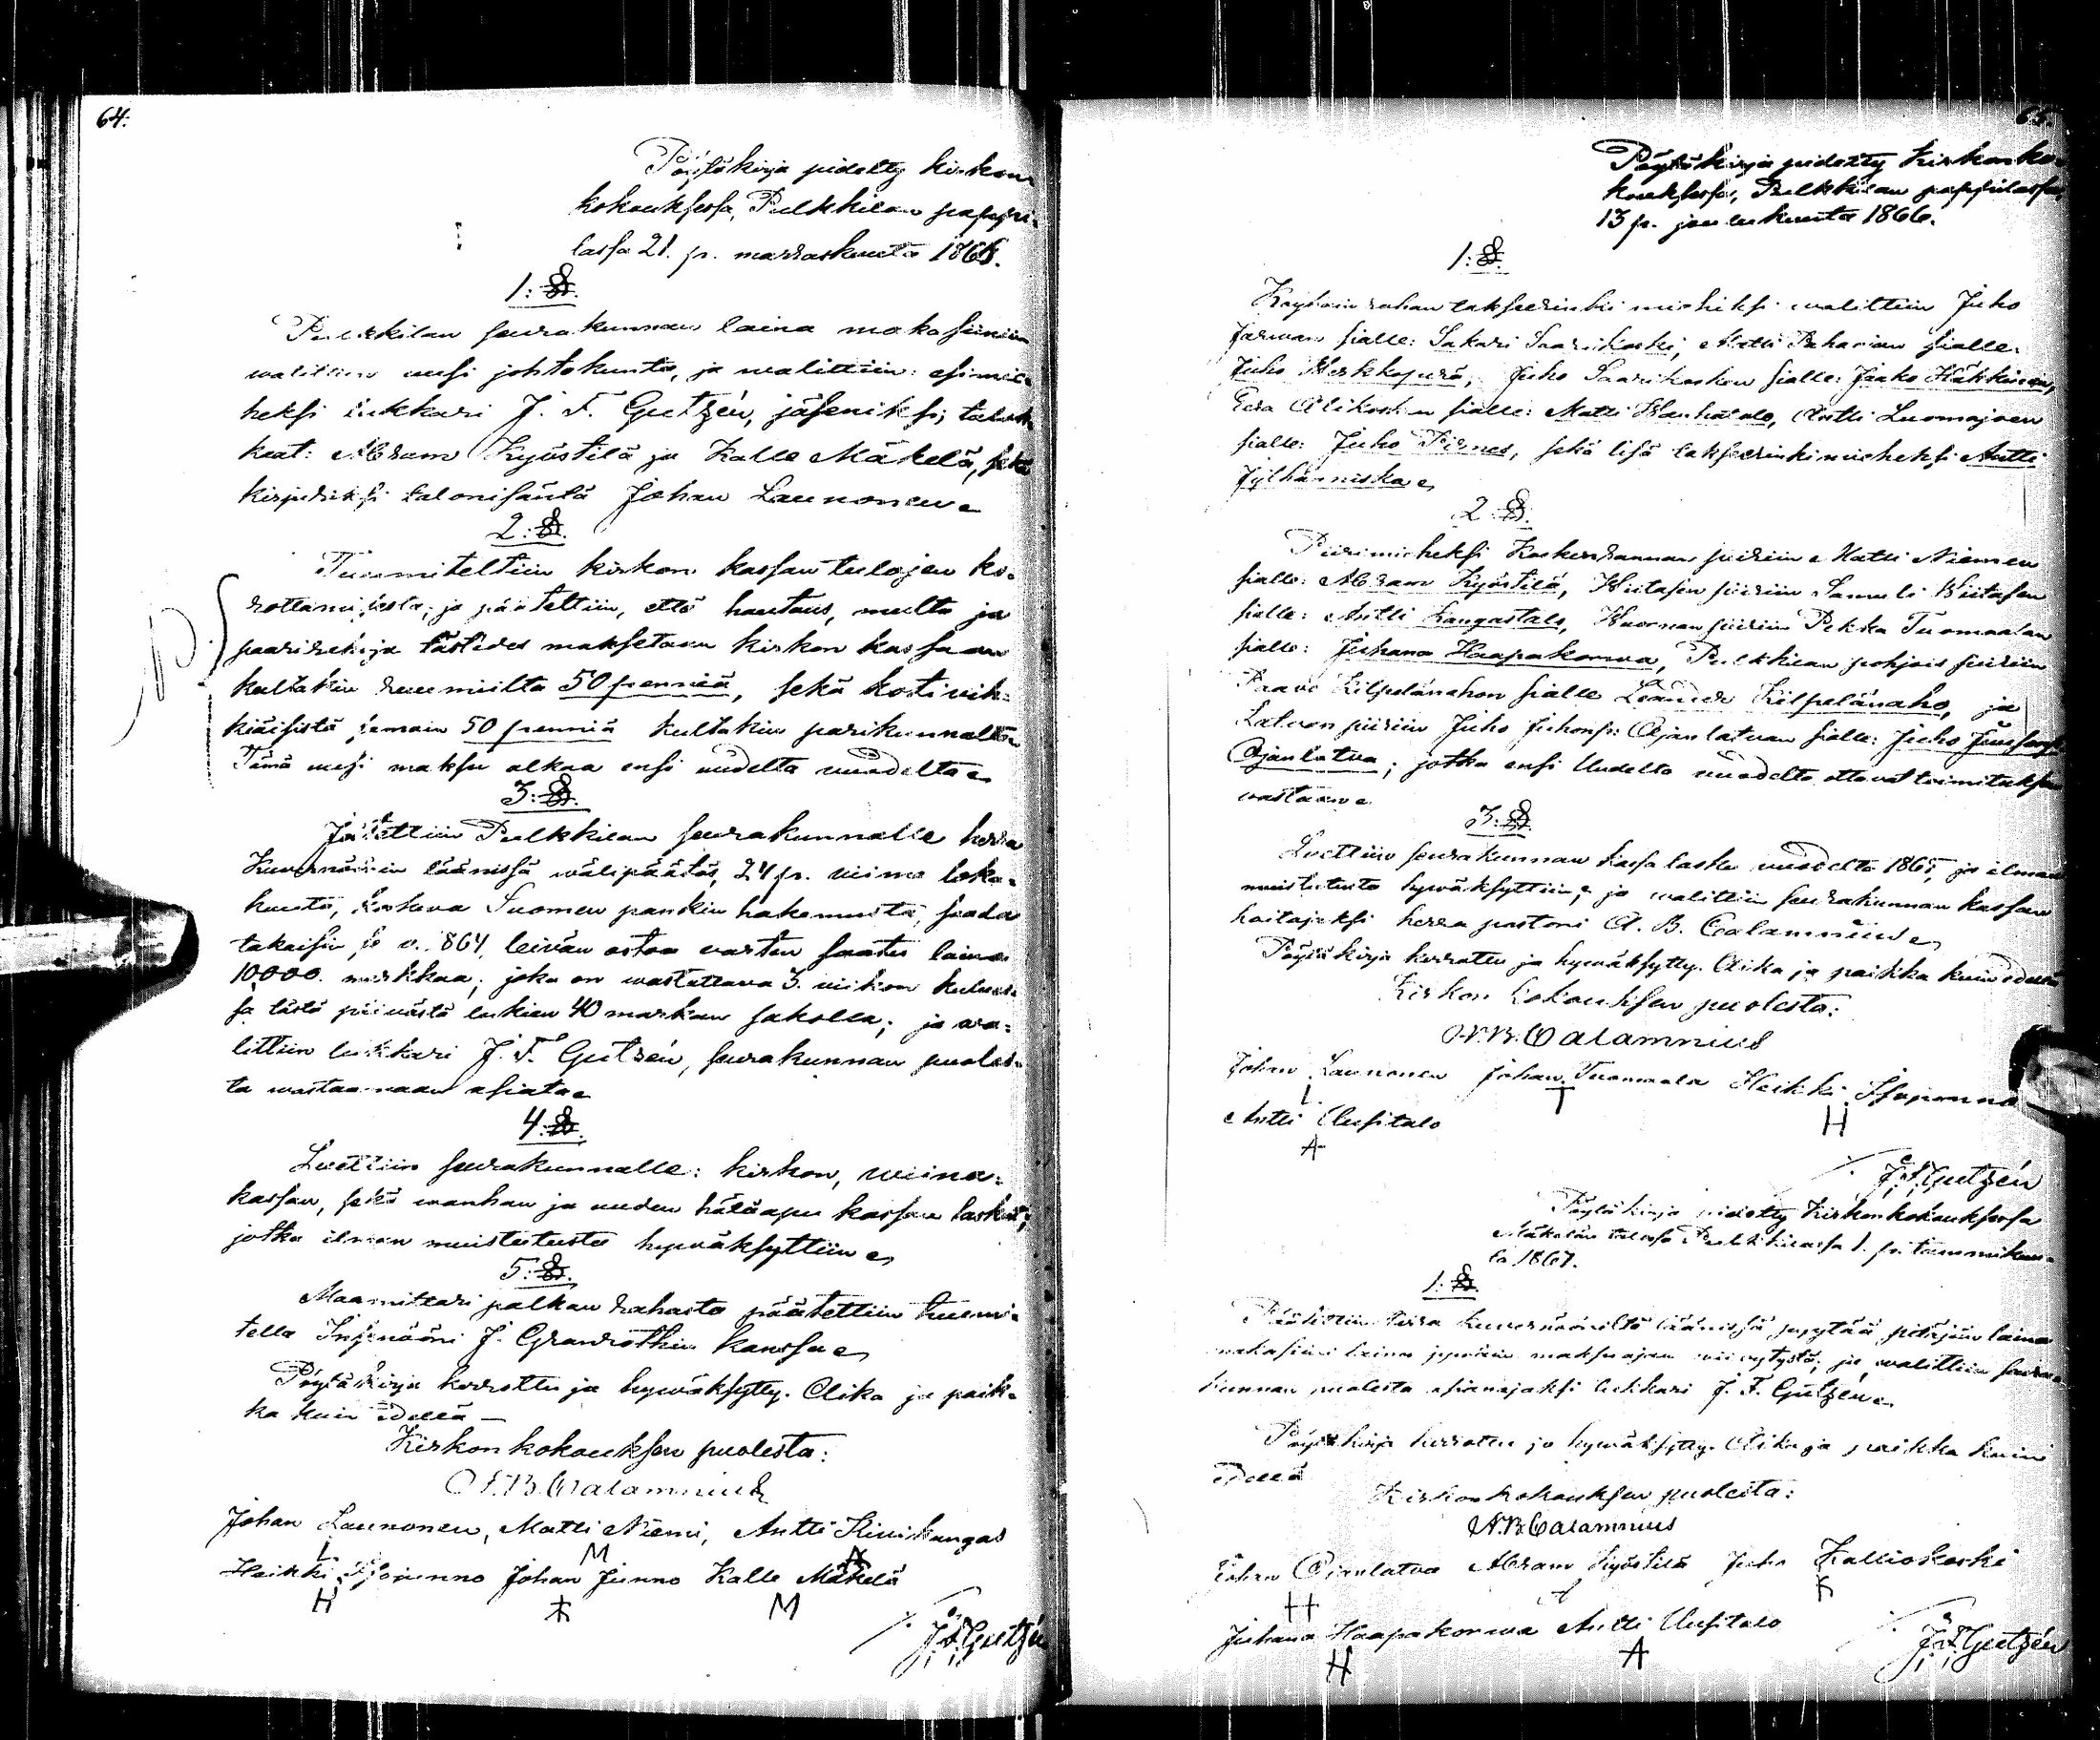 64.
Pöytäkirja pidetty kirkon
kokouksessa, Pulkkilan pappi-
lassa 21. p. marraskuuta 1866.
1: §.
Pulkkilan seurakunnan laina makasiiniin
walittiin uusi johtokunta, ja walittiin: esimie-
heksi lukkari J. F. Gutzén, jäseniksi; talok-
keat: Abram Kyöstilä ja Kalle Mäkelä, sekä
kirjuriksi talonisäntä Johan Launonen
2: §.
Tuumiteltiin kirkon kassan tulojen ko-
rottamisesta; ja päätettiin, että hautaus, multa ja
paarirekija tästedes maksetaan kirkon kassaan
kultakin ruumiilta 50 penniä, sekä kotivih-
kiäisistä samain 50 penniä kultakin parikunnalta
Tämä uusi maksu alkaa ensi uudelta vuodelta
3: §.
Julettiin Pulkkilan seurakunnalle herra
Kuvernöörin läänissä wälipäätös, 24 p. viime loka-
kuuta, koskeva Suomen pankin hakemusta, saada
takaisin se v. 864, leivän ostoa varten saatu laina
10,000. markkaa; joka on wastattava 3. viikon kulues-
sa tästä päivästä lukien 40 markan sakolla; ja wa-
littiin lukkari J. F. Gutzén, seurakunnan puoles-
ta wastaamaan asiata
4: §.
Luettiin seurakunnalle: kirkon, wiina-
kassan, sekä wanhan ja uuden hätäapu kassan laskut;
jotka ilman muistutusta hywäksyttiin
5: §.
Maamittari palkan rahasta päätettiin tuumi-
tella Insinööri J. Granrothin kanssa
Pöytäkirja korrottu ja hywäksytty. Aika ja paik-
ka kuin edellä —
Kirkonkokouksen puolesta:
A. B. Calamnius
Johan Launonen, Matti Niemi, Antti Kiviskangas
L M A
Heikki Isojunno Johan Junno Kalle Mäkelä
H M
J. F. Gutzén
65.
Pöytäkirja pidetty Kirkonko-
kouksessa, Pulkkilan pappilassa,
13 p. joulukuuta 1866.
1: §.
Köyhäin rahan takseerinki miehiksi walittiin Juho
Järwan sialle: Sakari Saarikoski, Matti Pahanian sialle:
Juho Herkkoperä, Juho Saarikosken sialle: Jaako Häkkinen,
Eera Alikosken sialle: Matti Wanhatalo, Antti Luomajoen
sialle: Juho Pirnes, sekä lisä takseerinkimieheksi Antti
Jylhänniska
2: §.
Piirimieheksi Koskenrannan piiriin Matti Niemen
sialle: Abram Kyöstilä, Wiitasen piiriin Samuli Wiitasen
sialle: Antti Kangastalo, Wuornan piiriin Pekka Tuomaalan
sialle: Juhana Haapakorwa, Pulkkilan pohjais piiriin
Paavo Kilpelänahon sialle Leander Kilpelänaho, ja
Latwan piiriin Juho Juhonp: Ojanlatwan sialle: Juho
Ojanlatwa; jotka ensi Uudelta vuodelta ottavat toimituksen
wastaan
3: §.
Luettiin seurakunnan kassa lasku vuodelta 1865, ja ilman
muistutusta hywäksyttiin; ja walittiin seurakunnan kassan
hoitajaksi herra pastori A. B. Calamnius
Pöytäkirja korrottu ja hywäksytty. Aika ja paikka kuin edellä
Kirkon kokouksen puolesta:
A. B. Calamnius
Johan Launonen Johan Tuomaala Heikki Isojunno
L T H
Antti Uusitalo
A
J. F. Gutzén
Pöytäkirja pidetty Kirkonkokouksessa
Mäkelän talossa Pulkkilassa 1. p. tammikuu-
ta 1867.
1: §.
Päätettiin herra kuvernööriltä läänissä pyytää pitäjän laina
makasiini laina jywäin maksuajan wiiwytystä; ja walittiin seura-
kunnan puolesta asianajaksi lukkari J. F. Gutzén
Pöytäkirja korrottu ja hywäksytty. Aika ja paikka kuin
edellä
Kirkonkokouksen puolesta:
A. B. Calamnius
Johan Ojanlatva Abram Kyöstilä Juho Kallioskoski
H A K
Juhana Haapakorwa Antti Uusitalo
H A
J. F. Gutzén